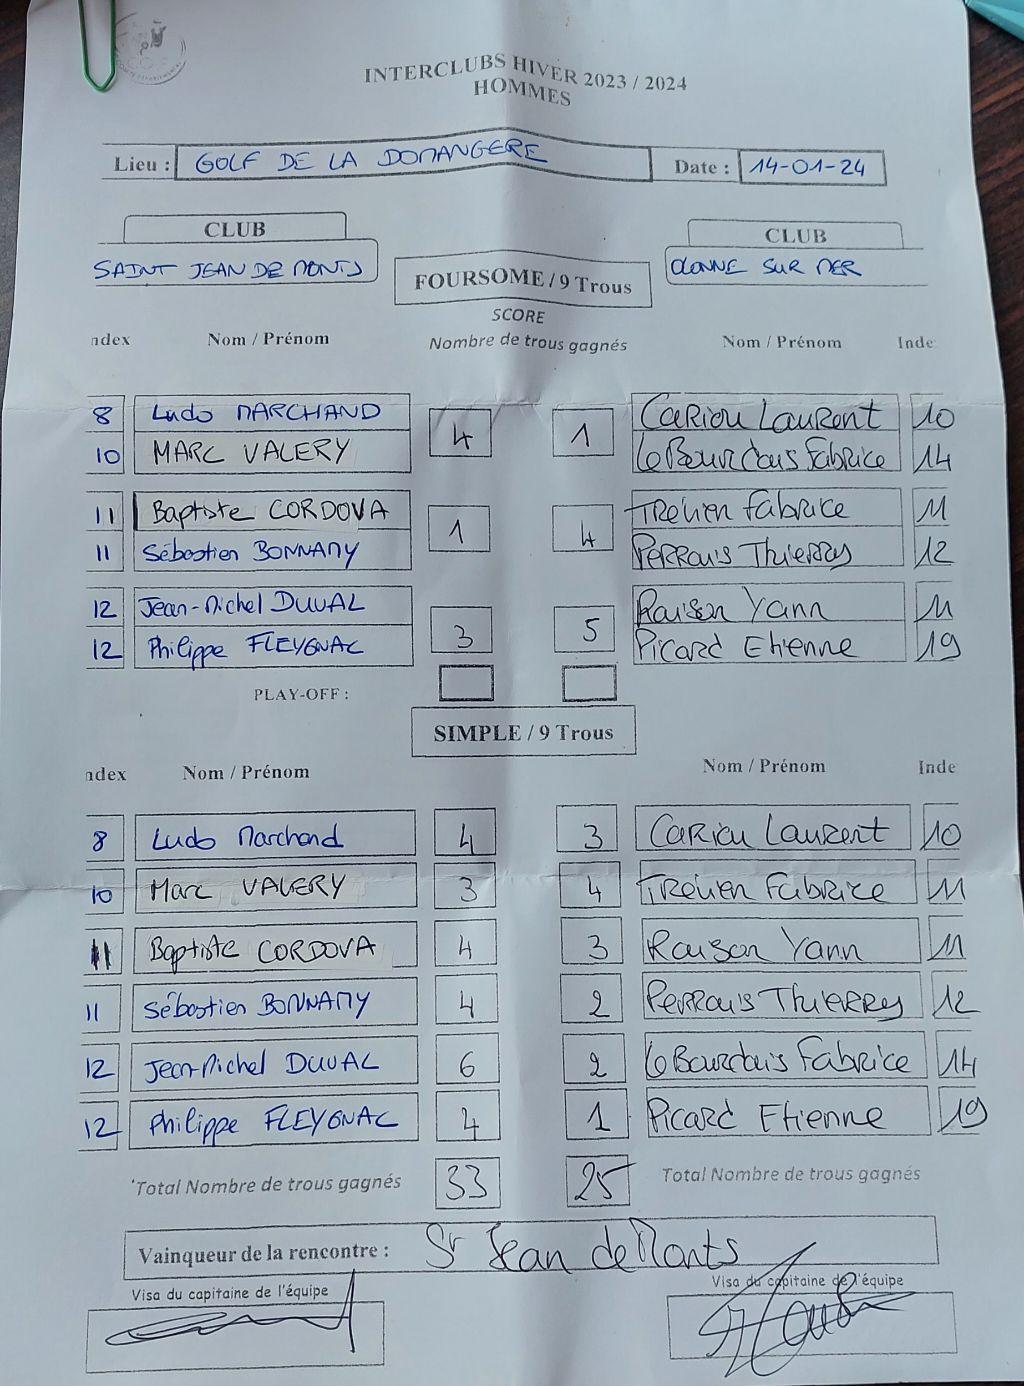 INTERCLUBS HIVER 2023 / 2024
HOMMES
Lieu : GOLF DE LA DOMANGERE Date : 14-01-24
CLUB CLUB
SAINT JEAN DE MONTS OLONNE SUR MER
FOURSOME / 9 Trous
SCORE
ndex Nom / Prénom Nombre de trous gagnés Nom / Prénom Inde
8 Ludo MARCHAND 4 1 Cariou Laurent 10
10 MARC VALERY Le Bourdais Fabrice 14
11 Baptiste CORDOVA 1 4 Tréhen Fabrice 11
11 Sébastien BONNAMY Perrais Thierry 12
12 Jean-Michel DUVAL 3 5 Raison Yann 11
12 Philippe FLEYGNAC Picard Etienne 19
PLAY-OFF :
SIMPLE / 9 Trous
ndex Nom / Prénom Nom / Prénom Inde
8 Ludo Marchand 4 3 Cariou Laurent 10
10 Marc VALERY 3 4 Tréhen Fabrice 11
11 Baptiste CORDOVA 4 3 Raison Yann 11
11 Sébastien BONNAMY 4 2 Perrais Thierry 12
12 Jean-Michel DUVAL 6 2 Le Bourdais Fabrice 14
12 Philippe FLEYGNAC 4 1 Picard Etienne 19
Total Nombre de trous gagnés 33 25 Total Nombre de trous gagnés
Vainqueur de la rencontre : St Jean de Monts
Visa du capitaine de l'équipe Visa du capitaine de l'équipe